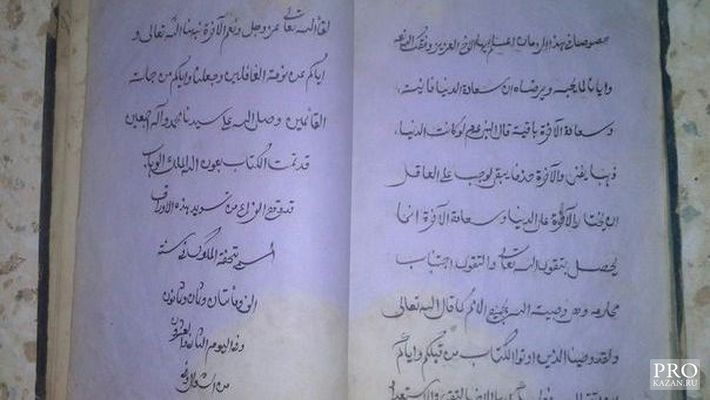 خصوصا في هذا الزمان اعلم ايها الاخ العزيز وفقك الله
وايانا لما يحبه ويرضاه ان سعادة الدنيا فانية،
وسعادة الآخرة باقية قال لو كانت الدنيا،
ذهبا يفنى والآخرة خزفا يبقى لوجب على العاقل
ان يختار الآخرة على الدنيا وسعادة الآخرة انما
يحصل بتقوى الله تعالى والتقوى اجتناب
محارمه وهى وصيته الله لجميع الامم كما قال الله تعالى
ولقد وصينا الذين اوتوا الكتاب من قبلكم واياكم
لقاء الله تعالى عز وجل ونعم الآخرة نبهنا الله تعالى و
اياكم عن نومة الغافلين وجعلنا واياكم من
القائمين وصلى الله على سيدنا محمد وآله اجمعين
قد تمت الكتاب بعون الله الملك الوهاب
قد وقع الفراغ من تسويد هذه الاوراق
بتحفة الملوك في سنة
الف ومائتان وثمان وثمانون
وفي اليوم الثاني والعشرون
من
PRO
KAZAN.RU